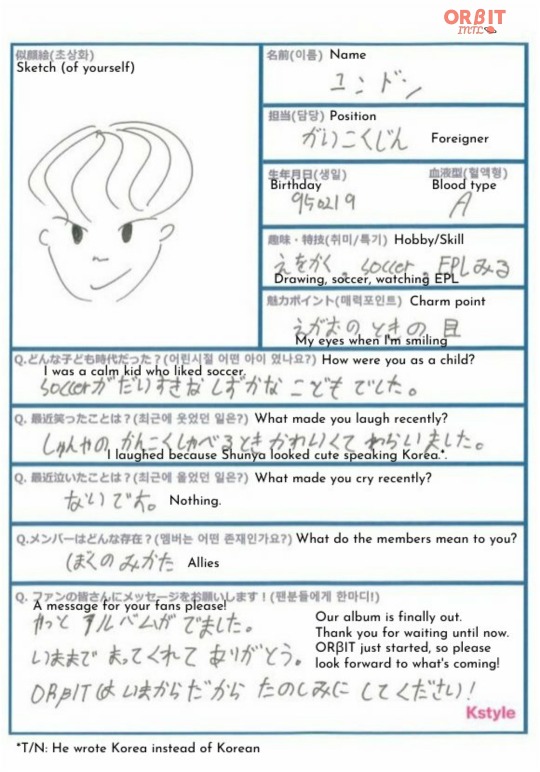 ORβIT
INT'L
似顔絵(초상화)
Sketch (of yourself)
名前(이름) Name
ユンドン
担当(담당) Position
がいこくじん Foreigner
生年月日(생일)
Birthday
950219
血液型(혈액형)
Blood type
A
趣味・特技(취미/특기) Hobby/Skill
えをかく 、 soccer 、 EPLみる
Drawing, soccer, watching EPL
魅力ポイント(매력포인트) Charm point
えがおの ときの 目
My eyes when I'm smiling
Q.どんな子ども時代だった？(어린시절 어떤 아이 였나요?) How were you as a child?
I was a calm kid who liked soccer.
soccerが だいすきな しずかな こども でした。
Q. 最近笑ったことは？(최근에 웃었던 일은?) What made you laugh recently?
しゅんやの かんこくしゃべるとき かわいくて わらいました。
I laughed because Shunya looked cute speaking Korea.*.
Q. 最近泣いたことは？(최근에 울었던 일은?) What made you cry recently?
ないです。 Nothing.
Q.メンバーはどんな存在？(멤버는 어떤 존재인가요?) What do the members mean to you?
ぼくの みかた Allies
Q. ファンの皆さんにメッセージをお願いします！(팬분들에게 한마디!)
A message for your fans please!
やっと アルバムが でました。
いままで まってくれて ありがとう。
ORβITは いまからだから たのしみに してください！
Our album is finally out.
Thank you for waiting until now.
ORβIT just started, so please
look forward to what's coming!
Kstyle
*T/N: He wrote Korea instead of Korean